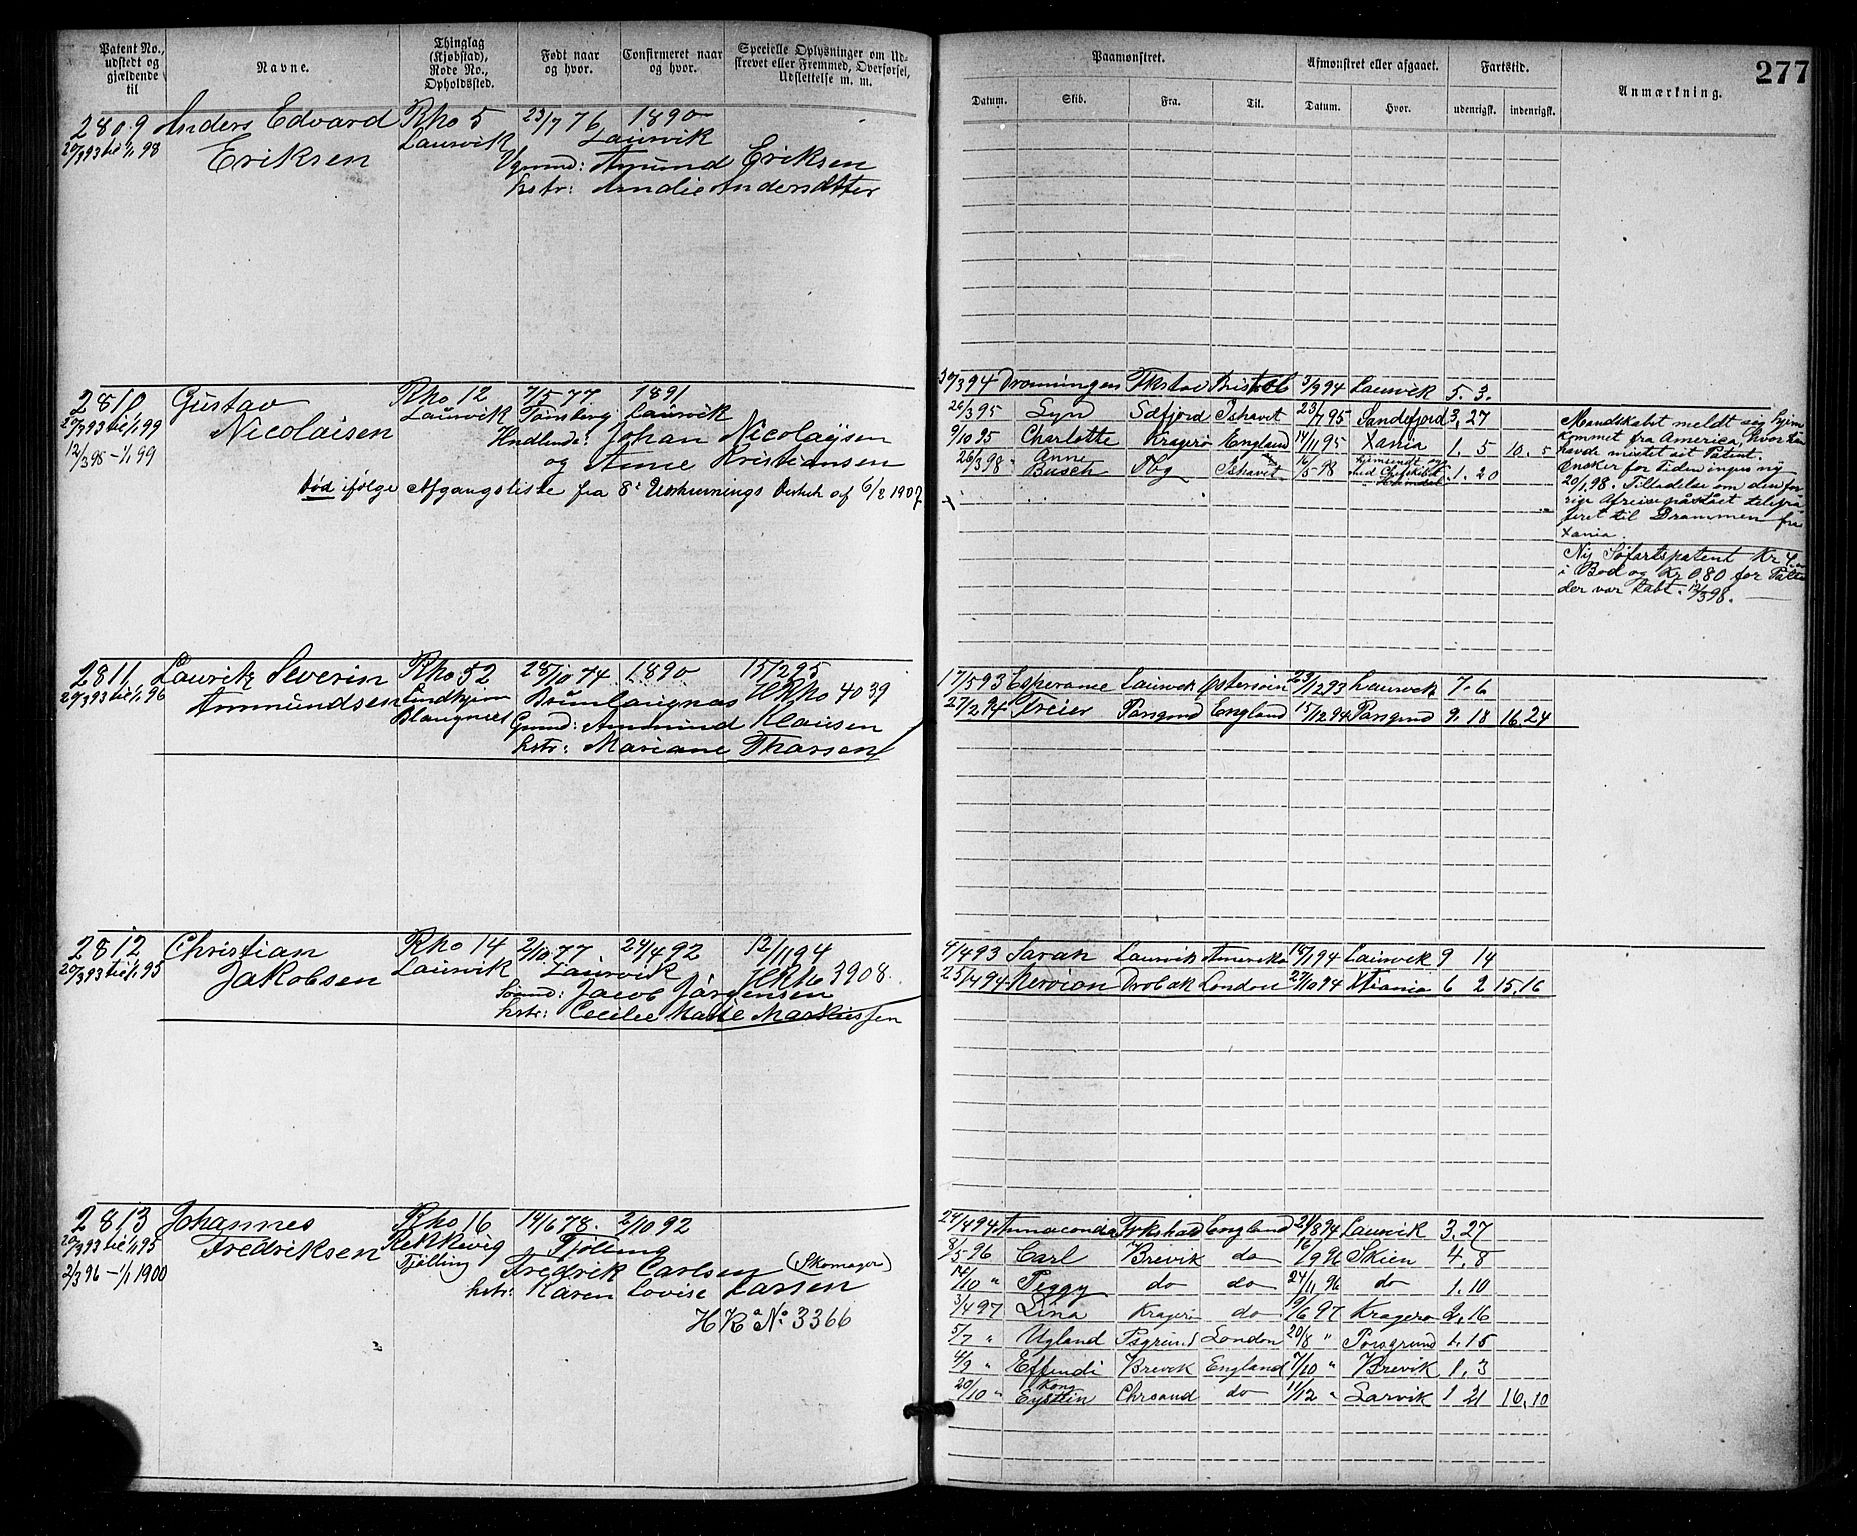 277
Patent No., udstedt og gjældende til
Navne.
Thinglag (Kjøbstad), Rode No., Opholdssted.
Født naar og hvor.
Confirmeret naar og hvor.
Specielle Oplysninger om Udskrevet eller Fremmed, Overførsel, Udslettelse m. m.
Paamønstret.
Afmønstret eller afgaaet.
Fartstid.
Anmærkning.
Datum.
Skib.
Fra.
Til.
Datum.
Hvor.
udenrigsk.
indenrigsk.
2809 Anders Edvard Rho 5 23/7 76 1890
20/3 93 til 1/1 98 Eriksen Laurvik Laurvik
Amund Eriksen
hstr: Andersdtter
2810 Gustav Rho 12 7/5 77 1891
20/3 93 til 1/1 99 Nicolaisen Laurvik Tønsberg Laurvik
12/3 98 - 1/1 99 Johan Nicolaysen
og Anne Kristiansen
Død ifølge Afgangsliste fra 8de Udskrivnings Distrikt af 6/2 1907
3/3 94 Dronningen Fkstad Bristol 3/9 94 Laurvik 5. 3.
26/3 95 Lyn Sdfjord Ishavet 23/7 95 Sandefjord 3, 27
9/10 95 Charlotte Kragerø England 14/11 95 Xania 1. 5 10. 5
26/3 98 Anne
Busch Tbg Ishavet 16/5 98 1. 20
Mandskabet meldt sig hjem
kommet fra America, hvor han
havde mistet sit Patent.
Ønsker for Tiden ingen ny
20/1 98. Tilladelse om den for
rige Afreise
til Drammen fra
Xania.
Ny Søfartspatent Kr 4,00
i Bod og Kr 0.80 for
der var tabt. 12/3 98.
2811 Lauritz Severin Rho 52 28/10 74 1890 15/2 95
20/3 93 til 1/1 96 Ammundsen Lindhjem Brunlangnæs HRho 4039
Gmd: Ammund Klausen
hstr: Mariane Tharsen
17/5 93 Esperance Laurvik Østersøen 23/12 93 Laurvik 7. 6
27/2 94 Freier Porsgrnd England 15/12 94 Porsgrund 9. 18 16, 24
2812 Christian Rho 14 2/10 77 24/4 92 12/11 94
20/3 93 til 1/1 95 Jakobsen Laurvik Laurvik HRho 3908.
Sømd: Jacob Jørgensen
hstr: Cecilie Marie Markussen
4/4 93 Sarah Laurvik Amerika 18/1 94 Laurvik 9 14
25/4 94 Drøbak London 27/10 94 Xtiania 6 2 15, 16
2813 Johannes Rho 16 14/6 78. 2/10 92
20/3 93 til 1/1 95 Fredriksen Rekkevig Fjølling
2/3 96 - 1/1 1900 Tjølling Fredrik Carlsen (Skomager)
hstr: Karen Lovise Larsen
HRa No 3366
24/4 94 Annaconda Frkshad England 21/8 94 Laurvik 3, 27
8/5 96 Carl Brevik do 16/9 96 Skien 4, 8
14/10 " Peggy do do 24/11 96 do 1. 10
3/4 97 Lina Kragerø do 19/6 97 Kragerø 2, 16
5/7 " Ugland Psgrund London 20/8 " Porsgrund 1. 15
4/9 " Effendi Brevik England 7/10 " Brevik 1. 3
20/10 " Kong
Eystein Chrsand do 11/12 " Larvik 1 21 16, 10